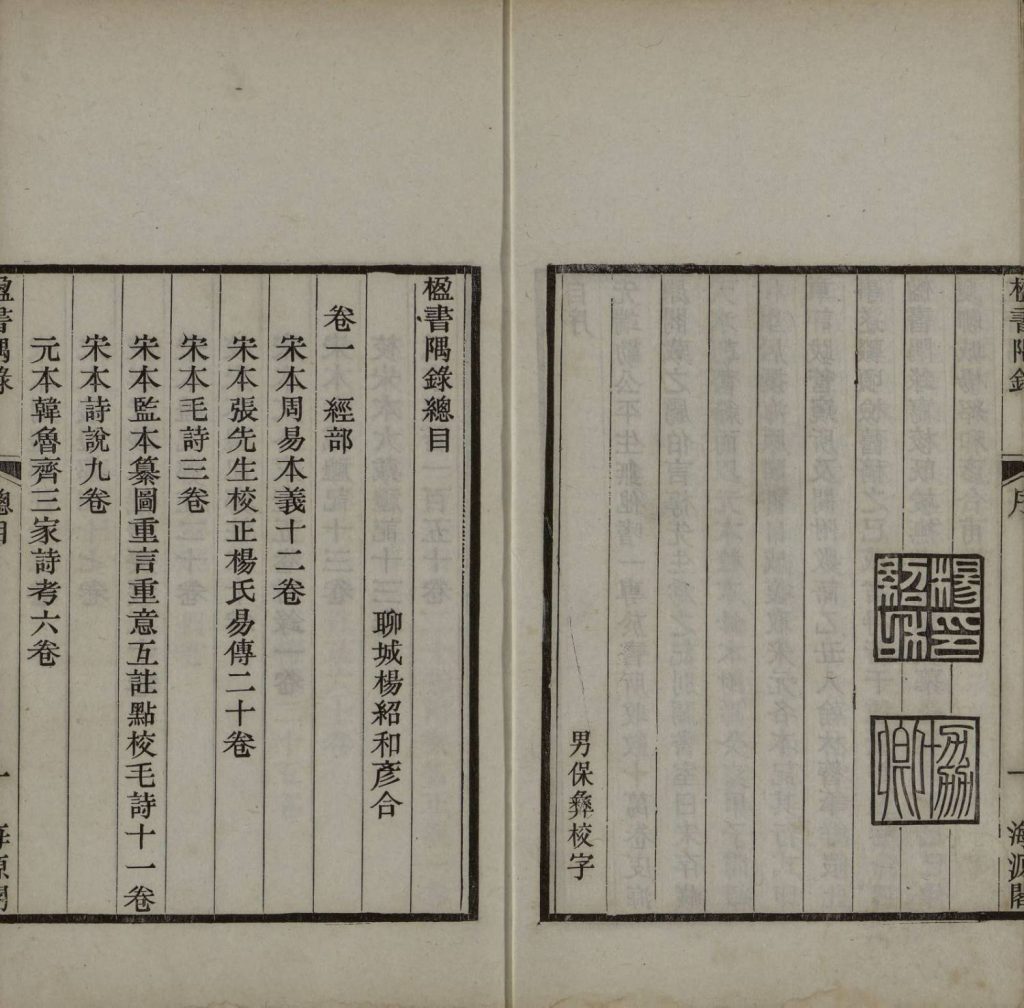 楹書隅錄
序
一
海源閣
楊印紹和
協卿
男保彝校字
楹書隅錄總目
聊城楊紹和彥合
卷一 經部
宋本周易本義十二卷
宋本張先生校正楊氏易傳二十卷
宋本毛詩三卷
宋本監本纂圖重言重意互註點校毛詩十一卷
宋本詩說九卷
元本韓魯齊三家詩考六卷
楹書隅錄
總目
一
海源閣